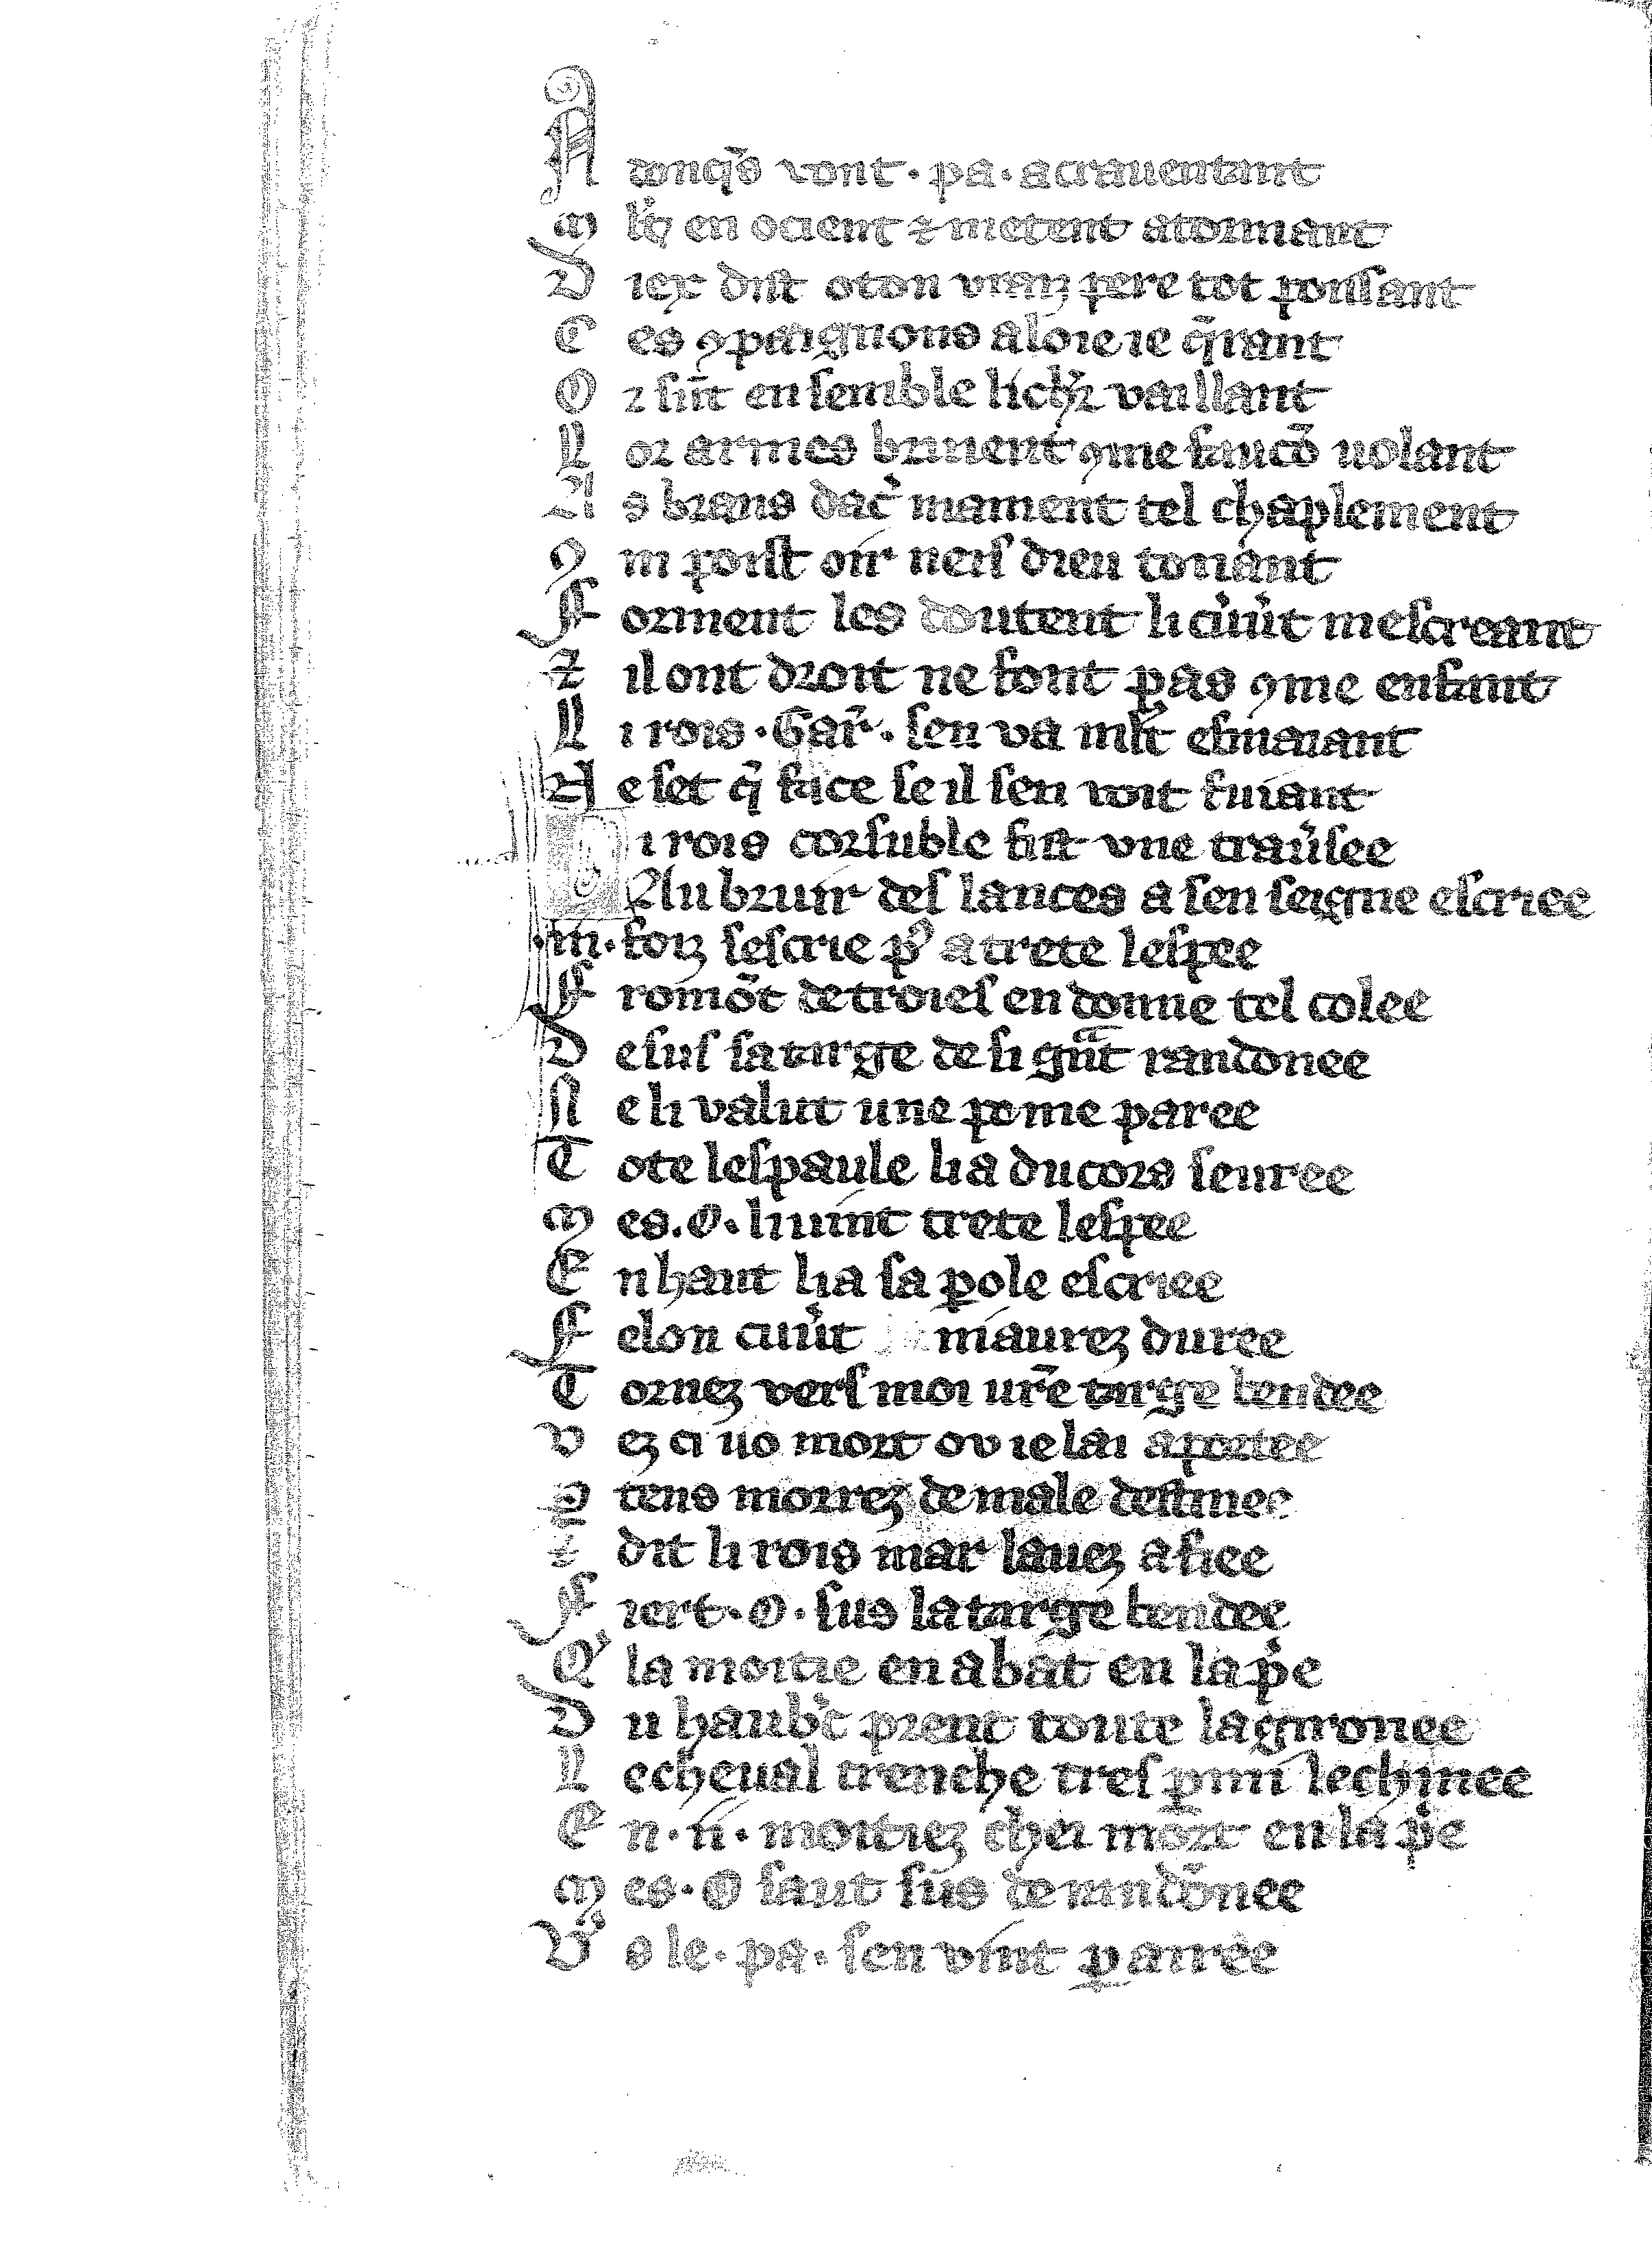 A donq̃s vont · pa · acrauentant
M lt̾ en ocient ⁊ metent a torment
D iex dist oton vraiz pere tot poissant
C es ꝯpaignons aloie ie q̃rant
O r sũt en semble li cheʳ vaillant
L or armes bruient ꝯme faucõ uolant
A s brans dac̾ mainent tel chaplement
ꝯ ni poïst oïr neis dieu tonant
F orment les doutent li cuu̾t mescreant
⁊ il ont droit ne font pas ꝯme enfant
L i rois · Gar̃ · sen va ml̃t esmaiant
N e set q̃ face se il sen voit fuiant
L i rois corsuble fist vne trau̾see
Au bruir des lances a sen seigne escriee
· m · foiz sescrie pꝰ a trete lespee
F romõt de troies en donne tel colee
D esus sa targe de si gñt randonee
N e li valut une pome paree
T ote lespaule li a du cors seuree
M es · O · li uint trete lespee
E n haut li a sa ꝑole escriee
F elon cuu̾t ni aurez duree
T ornez vers moi ur̃e targe bendee
V ez ci uo mort ou ie lai aportee
ꝯ tens morrez de male destinee
⁊ dit li rois mar lauez afiee
F iert · O · sus la targe bendee
Qͥ la moitie en abat en la p̾e
D u haub̾c prent toute la gironee
L e cheual trenche tres ꝑmi leschinee
E n · ii · moitiez cheï mort en la p̾e
M es · O saut sus de randõnee
V̾ s le · pa · sen vint ꝑ airree